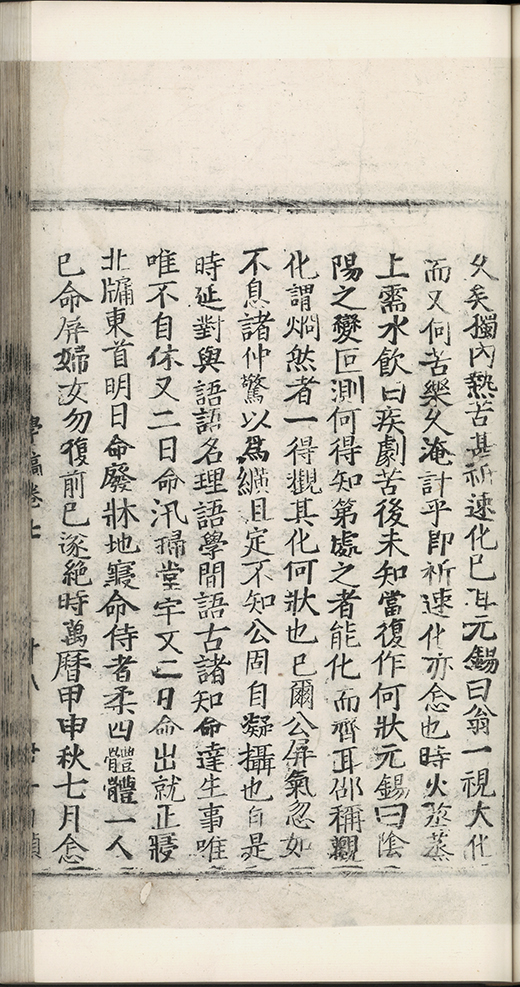 久矣獨內熱苦甚祈速化已耳元錫曰翁一視大化
而又何苦樂久淹計乎即祈速化亦悆也時火蒸蒸
上需水飲曰疾劇苦後未知當復作何狀元錫曰陰
陽之變叵測何得知第處之者能化而齊耳邵稱觀
化謂烱然者一得觀其化何狀也已爾公屏氣忽如
不息諸仲驚以爲纊且定不知公固自凝攝也自是
時延對與語語名理語學間語古諸知命達生事唯
唯不自休又二日命汛掃堂宇又二日命出就正寢
北牖東首明日命廢牀地寢命侍者柔四體體一人
已命屏婦女勿復前已遂絶時萬曆甲申秋七月悆
學稿卷七　十八